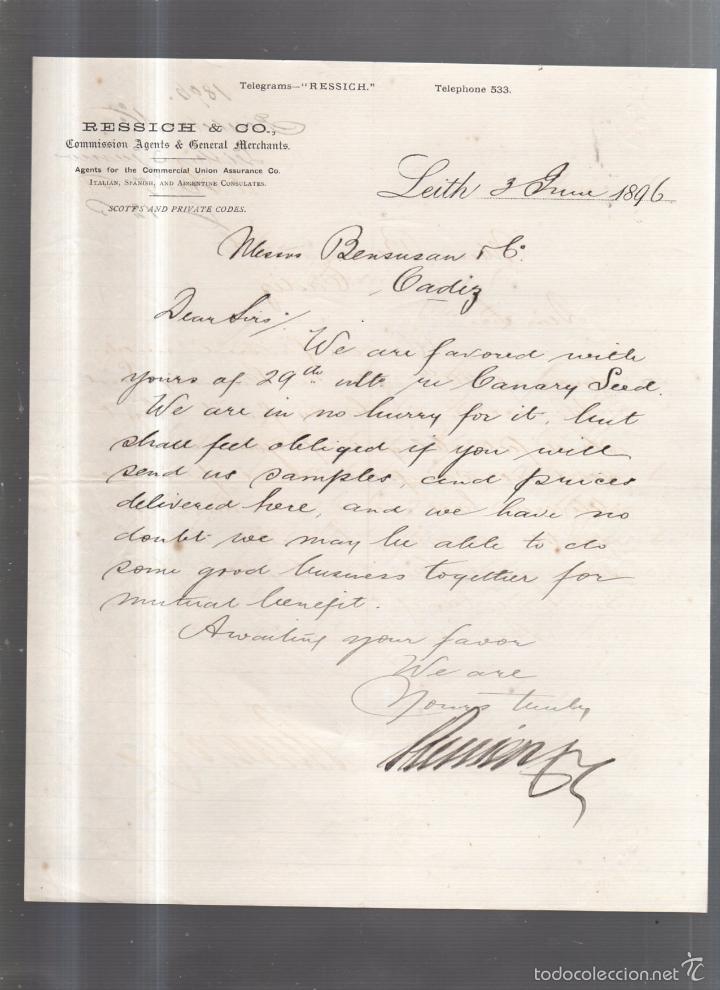 Telegrams—"RESSICH." Telephone 533.
RESSICH & CO.,
Commission Agents & General Merchants.
Agents for the Commercial Union Assurance Co.
ITALIAN, SPANISH, AND ARGENTINE CONSULATES.
SCOTT'S AND PRIVATE CODES.
Leith 3 June 1896
Messrs Bensusan & Co.
Cadiz
Dear Sirs/.
We are favored with
yours of 29th ulto re Canary Seed.
We are in no hurry for it, but
shall feel obliged if you will
send us samples, and prices
delivered here, and we have no
doubt we may be able to do
some good business together for
mutual benefit.
Awaiting your favor
We are
Yours truly
Ressich & Co
todocoleccion.net